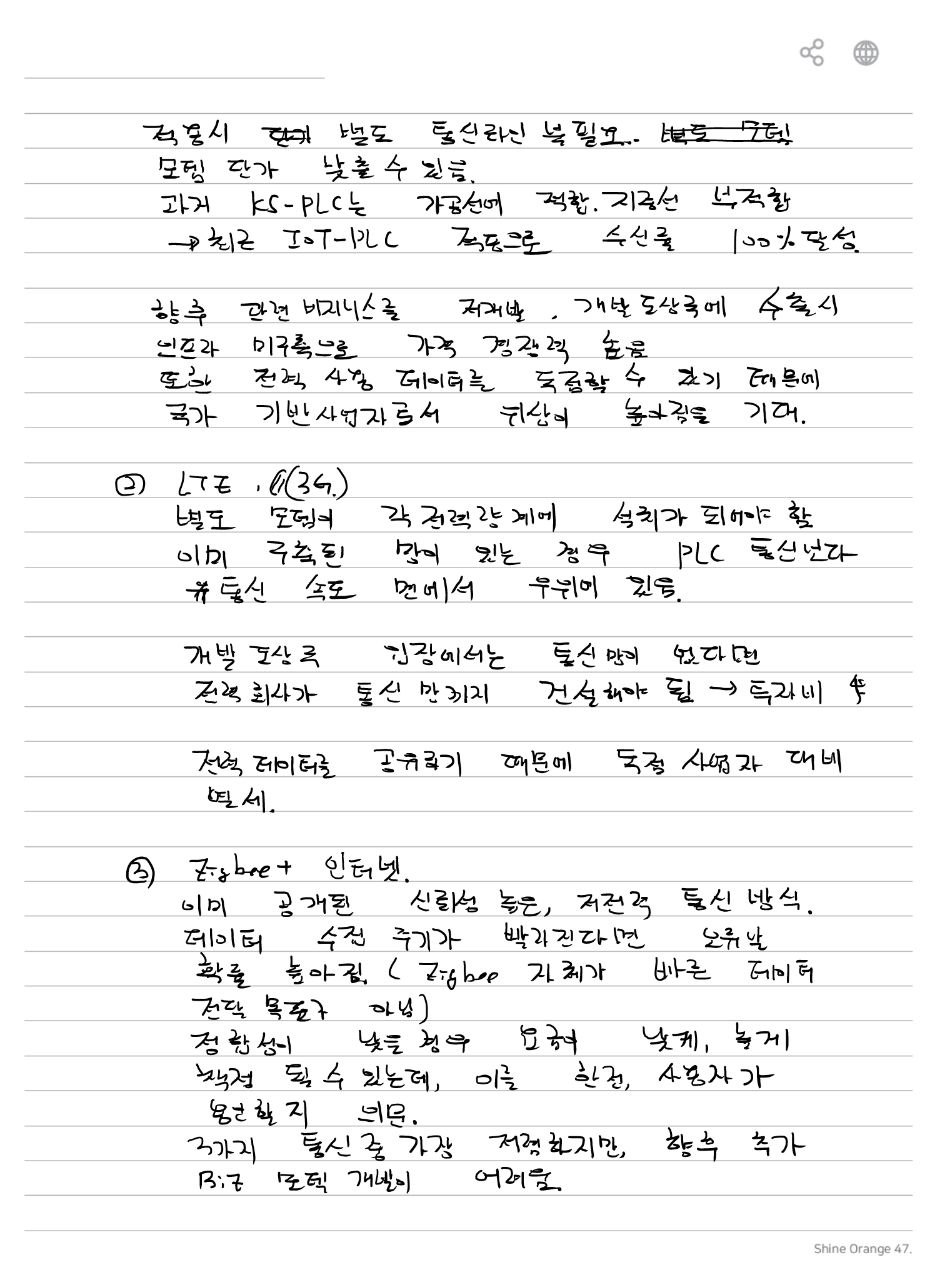 적용시 별도 통신라인 불필요..
모뎀 단가 낮출 수 있음.
과거 KS-PLC는 가공선에 적합. 지중선 부적합
→ 최근 IoT-PLC 적용으로 수신률 100% 달성.
향후 관련 비지니스를 저개발, 개발도상국에 수출시
인프라 미구축으로 가격 경쟁력 높음
또한 전력 사용 데이터를 독점할 수 있기 때문에
국가 기반사업자로서 위상이 높아짐을 기대.
② LTE, (3G.)
별도 모뎀이 각 전력량계에 설치가 되어야 함
이미 구축된 망이 있는 경우 PLC 통신보다
통신 속도 면에서 우위에 있음.
개발 도상국 입장에서는 통신망이 없다면
전력회사가 통신망까지 건설해야 됨 → 투자비
전력데이터를 공유하기 때문에 독점 사업자 대비
열세.
③ Zigbee + 인터넷.
이미 공개된 신뢰성 높은, 저전력 통신 방식.
데이터 수집 주기가 빨라진다면 오류날
확률 높아짐. (Zigbee 자체가 빠른 데이터
전달 목표가 아님)
정합성이 낮을 경우 요금이 낮게, 높게
책정 될 수 있는데, 이를 한전, 사용자가
용인할지 의문.
3가지 통신 중 가장 저렴하지만, 향후 추가
Biz 모델 개발이 어려움.
Shine Orange 47.